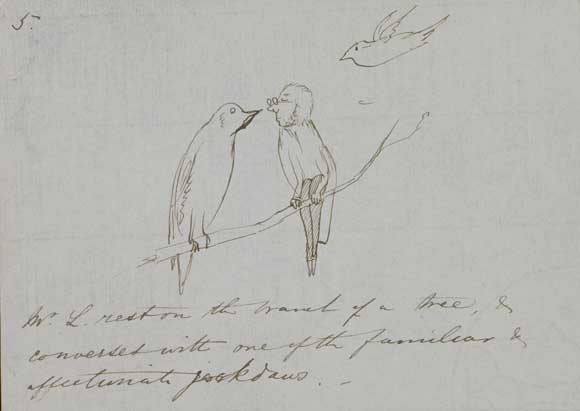 5.
Mr. L. rest on the branch of a tree, &
converses with one of the familiar &
affectionate jackdaws. -